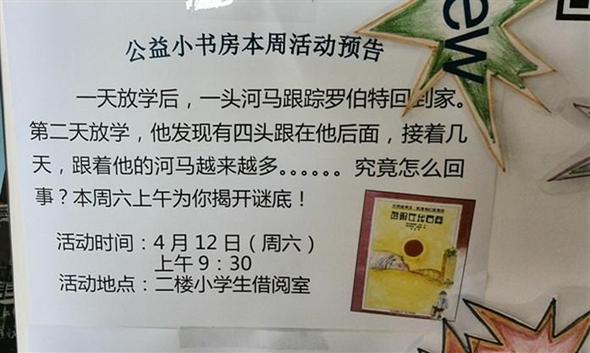 公益小书房本周活动预告
一天放学后，一头河马跟踪罗伯特回到家。
第二天放学，他发现有四头跟在他后面，接着几
天，跟着他的河马越来越多。。。。。。究竟怎么回
事？本周六上午为你揭开谜底！
活动时间：4月12日（周六）
上午9：30
活动地点：二楼小学生借阅室
ew